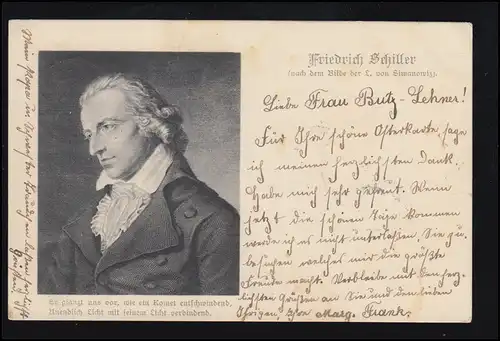 Friedrich Schiller
(nach dem Bilde der L. von Simanowiz).
Liebe Frau Butz-Lehner!
Für Ihre schöne Osterkarte, sage
ich meinen herzlichsten Dank.
Habe mich sehr gefreut. Wenn
jetzt die schönen Tage kommen
werde ich es nicht unterlassen, Sie zu
besuchen welches mir die größte
Freude macht. Verbleibe mit den herz-
lichsten Grüßen an Sie und den lieben
Ihrigen, Ihre Marg. Frank.
Er glänzt uns vor, wie ein Komet entschwindend,
Unendlich Licht mit seinem Licht verbindend.
Mein
grüßen.